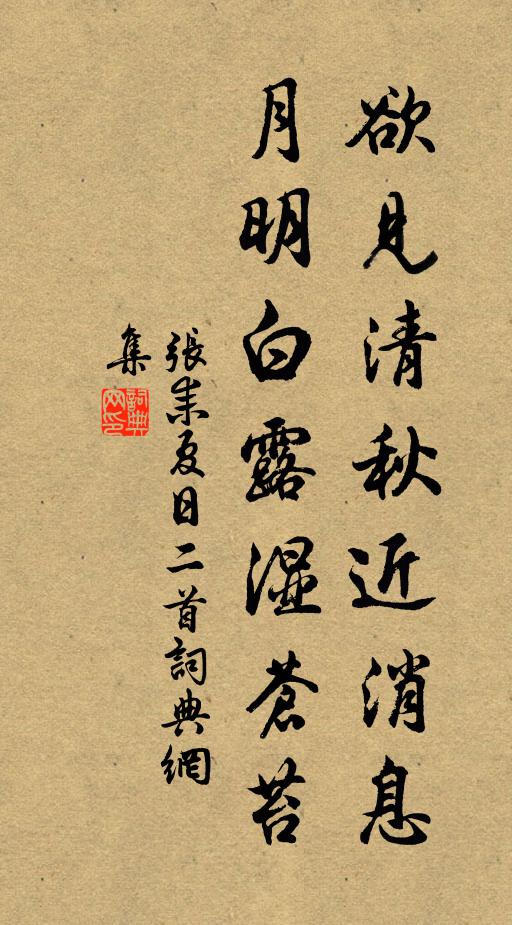 欲見清秋近消息
月明白露湿蒼苔
張耒夏日二首詞典網
集
詞典網印